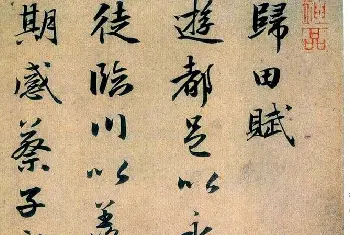 歸田賦
遊都邑以永
徒臨川以羡
期感蔡子